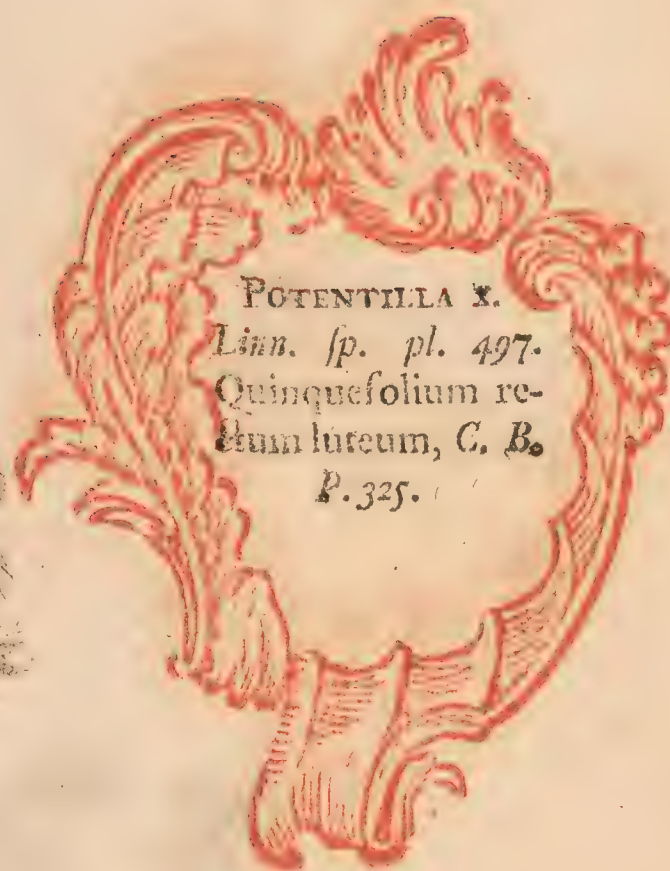 POTENTILLA X.
Linn. ſp. pl. 497.
Quinquefolium re-
ctum luteum, C. B.
P. 325.